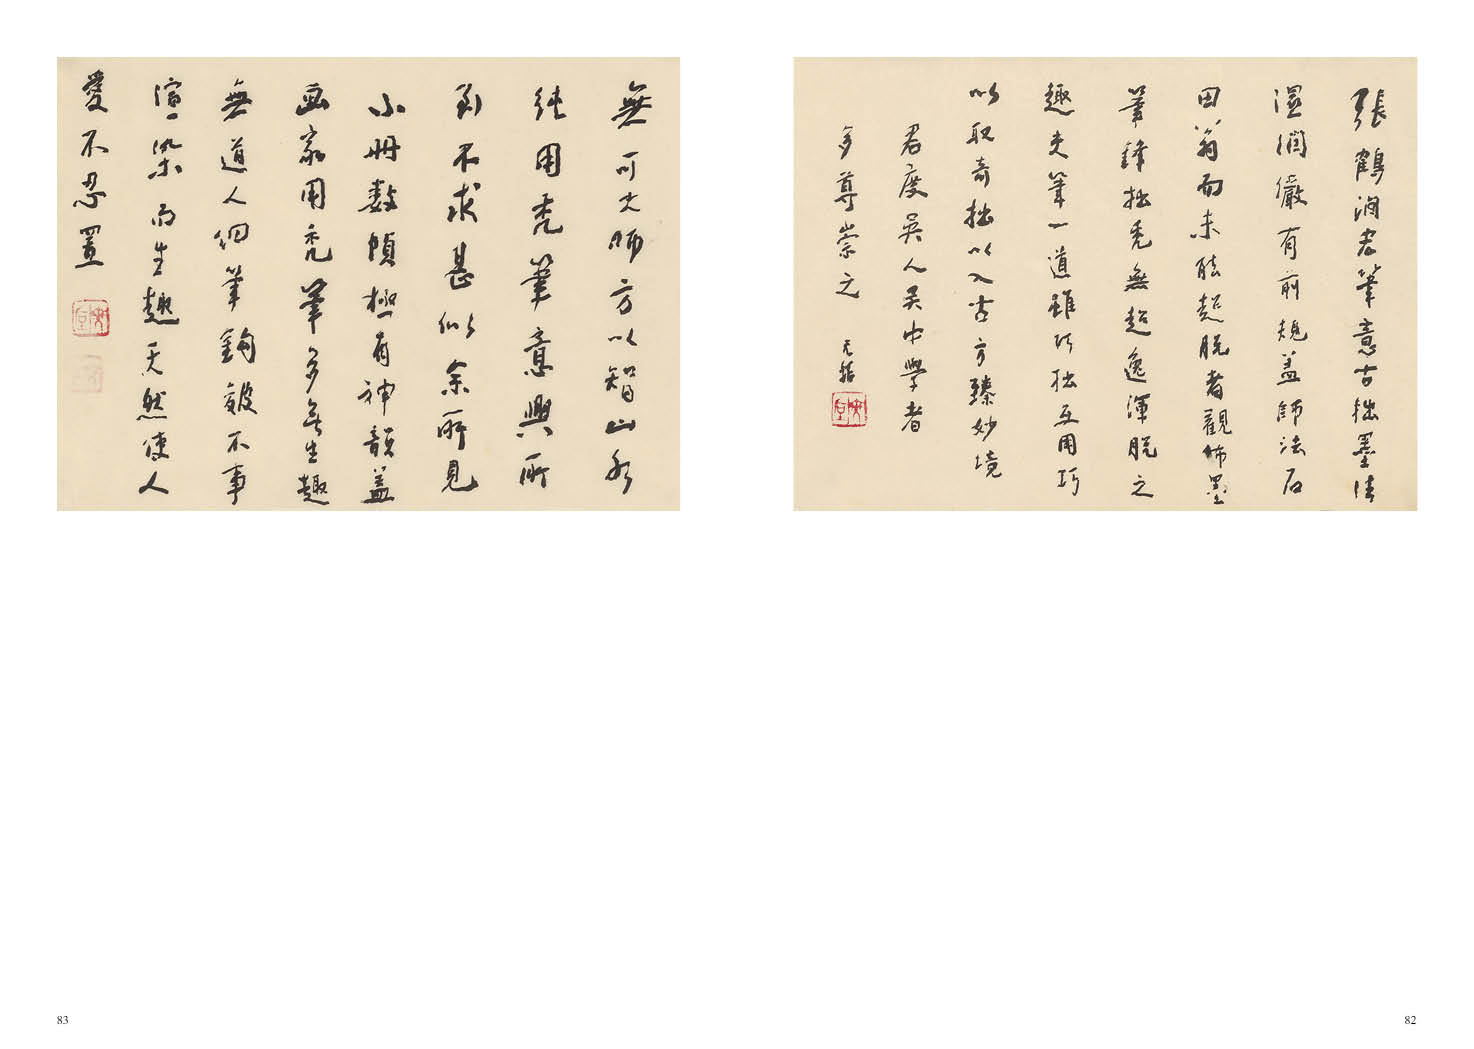 張鶴澗君筆意古拙墨法
溫潤儼有前規蓋師法石
田翁而未能超脫者觀佈墨
筆鋒拙禿無超逸渾脫之
趣夫筆一道雖巧拙互用巧
以取奇拙以入古方臻妙境
君度吳人吳中學者
多尊崇之
元
82
無可大師方以智山水
純用禿筆意興所
到不求甚似余所見
小冊數幀極有神韻蓋
畫家用禿筆多無生趣
無道人細筆鉤皴不事
渲染而生趣天然使人
愛不忍置
83